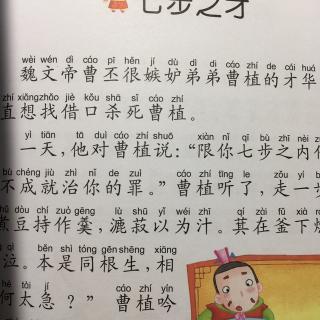 七步之才
wèi wén dì cáo pī hěn jí dù dì di cáo zhí de cái huá
魏文帝曹丕很嫉妒弟弟曹植的才华
zhí xiǎng zhǎo jiè kǒu shā sǐ cáo zhí
直想找借口杀死曹植。
yì tiān tā duì cáo zhí shuō xiàn nǐ qī bù zhī nèi
一天，他对曹植说：“限你七步之内
bù chéng jiù zhì nǐ de zuì cáo zhí tīng le zǒu yí
不成就治你的罪。”曹植听了，走一步
dòu chí zuò gēng lù shū yǐ wéi zhī qí zài fǔ xià
煮豆持作羹，漉菽以为汁。萁在釜下燃
qì běn shì tóng gēn shēng xiāng
泣。本是同根生，相
hé tài jí cáo zhí yín
何太急？”曹植吟